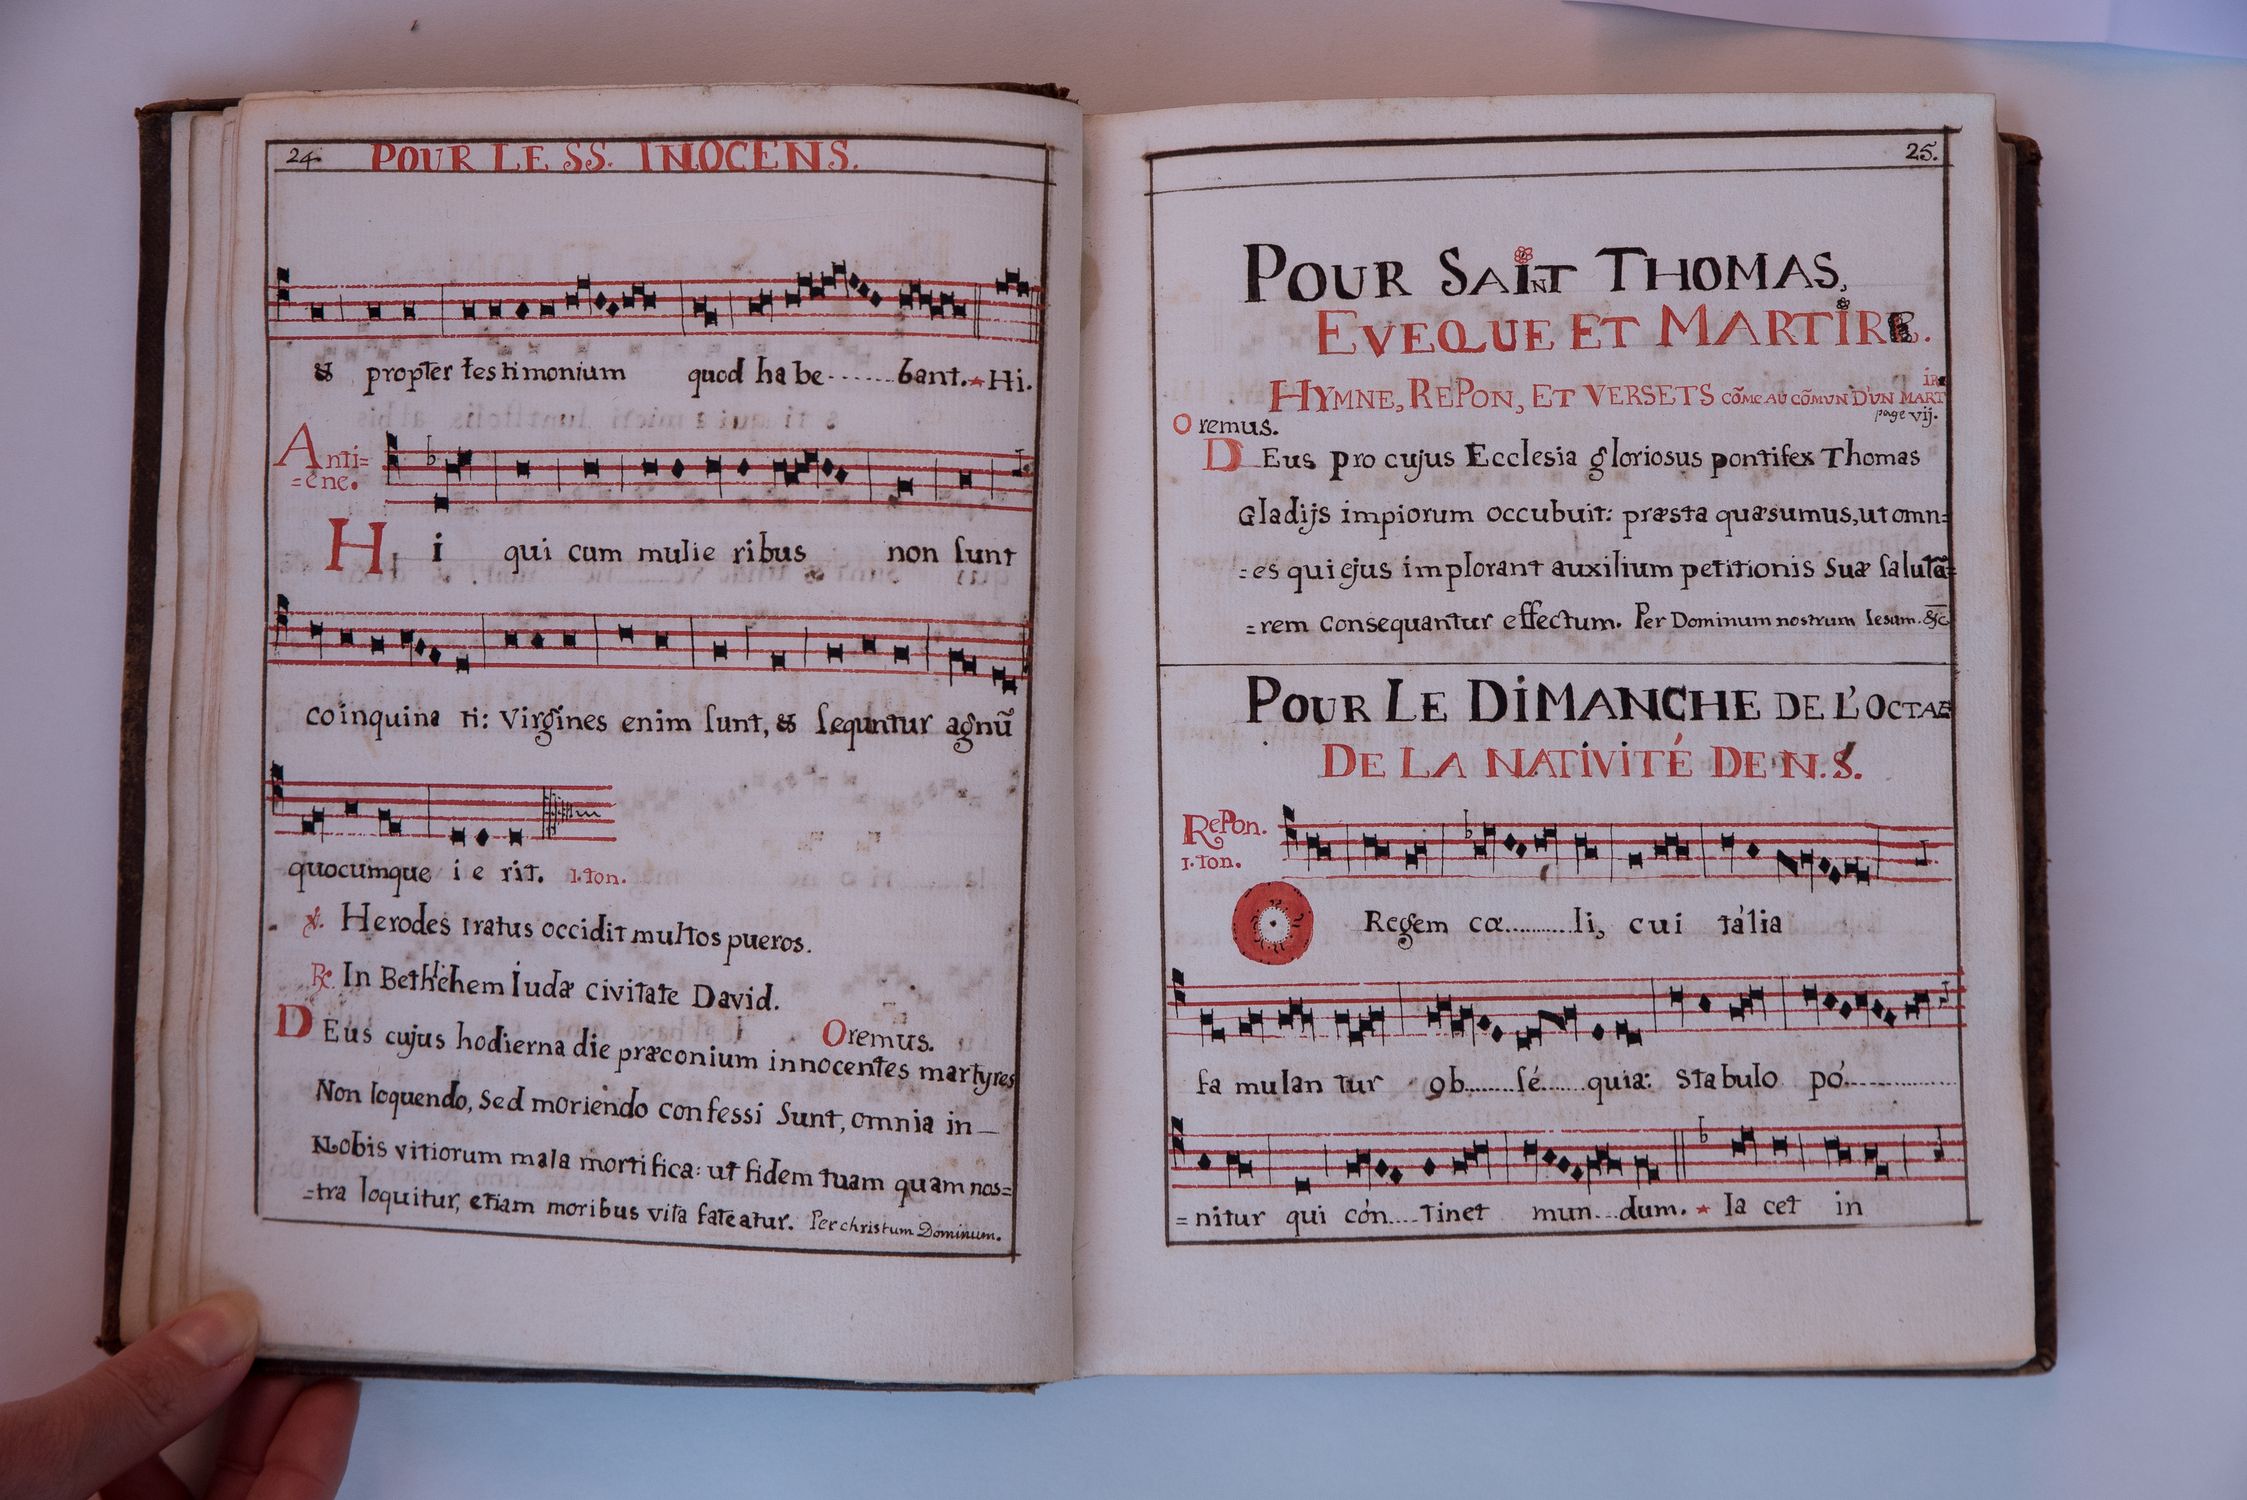 24. POUR LE SS. INOCENS.
& propter testimonium quod habe.......bant.*Hi.
Anti=
=ene.
Hi qui cum mulie ribus non sunt
coinquina ti: Virgines enim sunt, & sequntur agnū
quocumque i e rit. 1.ton.
℣. Herodes iratus occidit multos pueros.
℟. In Bethlehem Iudæ civitate David.
Oremus.
DEus cujus hodierna die præconium innocentes martyres
Non loquendo, sed moriendo confessi sunt, omnia in
Nobis vitiorum mala mortifica: ut fidem tuam quam nos=
=tra loquitur, etiam moribus vita fateatur. Per christum Dominum.
25.
POUR SAiNT THOMAS,
EVEQUE ET MARTiRE.
HYMNE, REPON, ET VERSETS CÕME AU CÕMUN D'UN MARTIR
page vij.
Oremus.
DEus pro cujus Ecclesia gloriosus pontifex Thomas
Gladijs impiorum occubuit: præsta quæsumus, ut omn=
=es qui ejus implorant auxilium petitionis suæ saluta=
=rem consequantur effectum. Per Dominum nostrum Iesum. &c
POUR LE DiMANCHE DE L'OCTAE
DE LA NATIVITÉ DE N.S.
RePon.
1.ton.
O Regem cœ..........li, cui tália
famulan tur ob.......sé......quia: stabulo pó..............
=nitur qui cón....tinet mun...dum. * Ia cet in